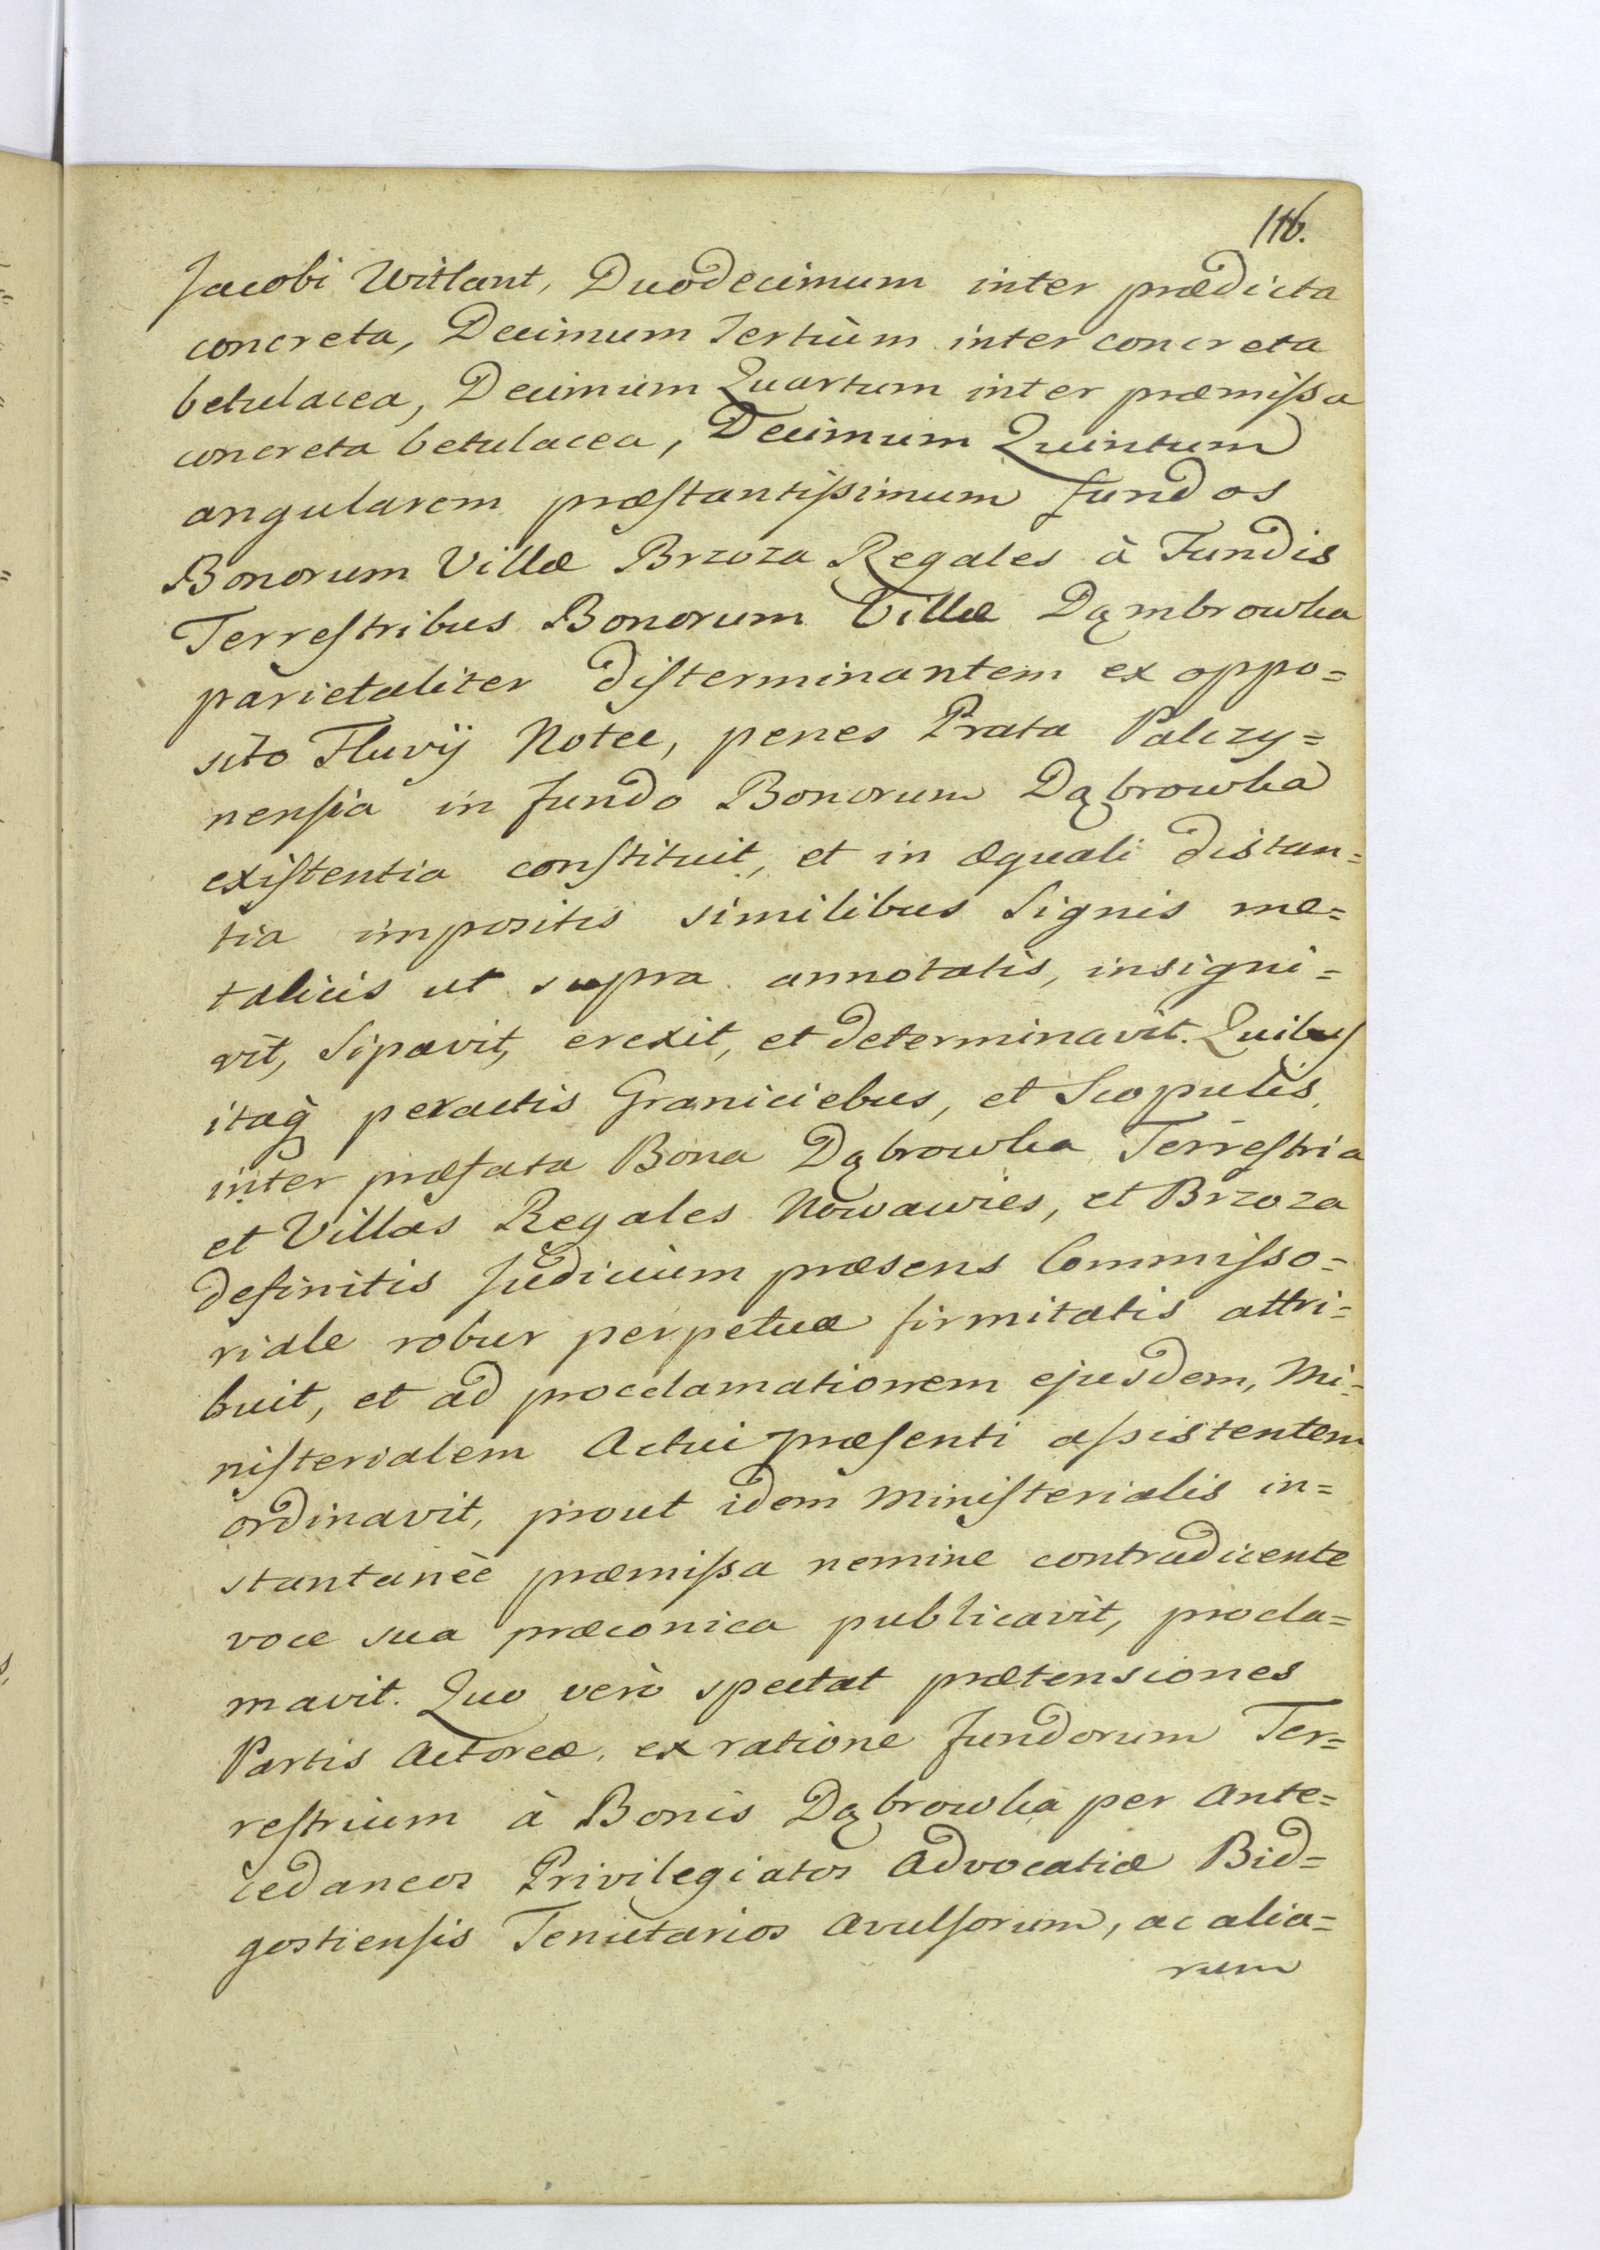 116.
Jacobi Witlant, Duodecimum inter prædicta
concreta, Decimum Tertiùm inter concreta
betulacea, Decimum Quartum inter præmiſsa
concreta betulacea, Decimum Quintum
angularem præſtantiſsimum fundos
Bonorum Villæ Brzoza Regales à Fundis
Terreſtribus Bonorum Villæ Dąmbrowka
parietaliter diſterminantem ex oppo=
sito Fluvÿ Notec, penes Prata Palczy=
nenſia in fundo Bonorum Dąbrowka
exiſtentia conſtituit, et in æquali distan=
tia impositis similibus Signis me=
talicis ut supra annotatis, insigni=
vit, Sipavit, erexit, et determinavit. Quibuſ
itaq̀ peractis Graniciebus, et Scopulis,
inter præfata Bona Dąbrowka Terreſtria
et Villas Regales Nowawies, et Brzoza
definitis Judicium præsens Commiſso=
riale robur perpetuæ firmitatis attri=
buit, et ad procclamationem ejusdem, Mi=
niſterialem Actui præſenti aſsistentem
ordinavit, prout idem Miniſterialis in=
stantaneè præmiſsa nemine contradicente
voce sua præconica publicavit, procla=
mavit. Quo verò spectat prætensiones
Partis Actoreæ, ex ratione fundorum Ter=
reſtrium à Bonis Dąbrowka per Ante=
cedaneos Privilegiatos Advocatiæ Bid=
gostienſis Tenutarios avulſorum, ac alia=
rum